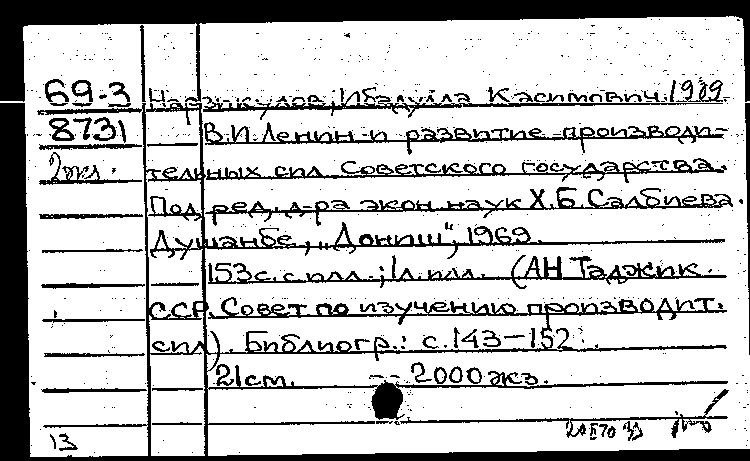 69-3 Нарзикулов, Ибадулла Касимович. 1909
8731 В.И. Ленин и развитие производи-
2 экз. тельных сил Советского государства.
Под ред. д-ра экон. наук Х.Б. Салбиева.
Душанбе, "Дониш", 1969.
153 с. с илл.; 1 л. илл. (АН Таджик.
ССР. Совет по изучению производит.
сил). Библиогр.: с. 143-152.
21 см. -- 2000 экз.
13